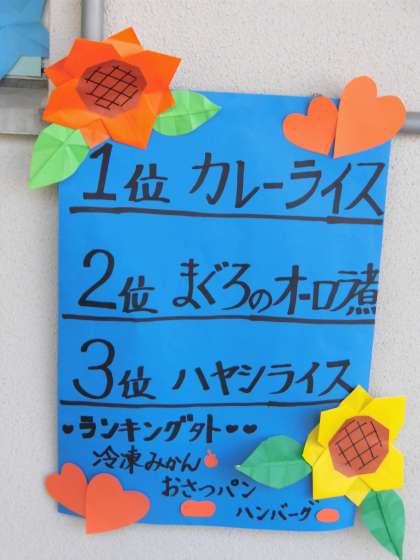 1位 カレーライス
2位 まぐろのオーロラ煮
3位 ハヤシライス
♥ランキング外♥♥
冷凍みかん
おさつパン
ハンバーグ